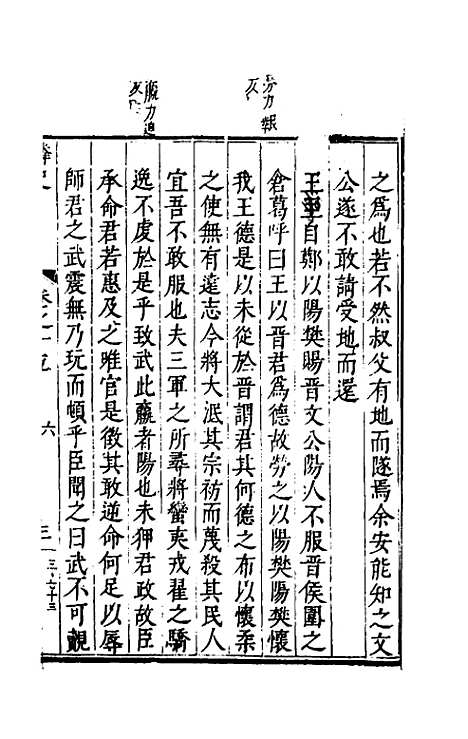 勞力報
反
羸力追
反
之爲也若不然叔父有地而隧焉余安能知之文
公遂不敢請受地而還
王至自鄭以陽樊賜晉文公陽人不服晉侯圍之
倉葛呼曰王以晉君爲德故勞之以陽樊陽樊懷
我王德是以未從於晉謂君其何德之布以懷柔
之使無有遠志今將大泯其宗祊而蔑殺其民人
宜吾不敢服也夫三軍之所尋將蠻夷戎翟之驕
逸不虔於是乎致武此羸者陽也未狎君政故臣
承命君若惠及之唯官是徵其敢逆命何足以辱
師君之武震無乃玩而頓乎臣聞之曰武不可覿
六